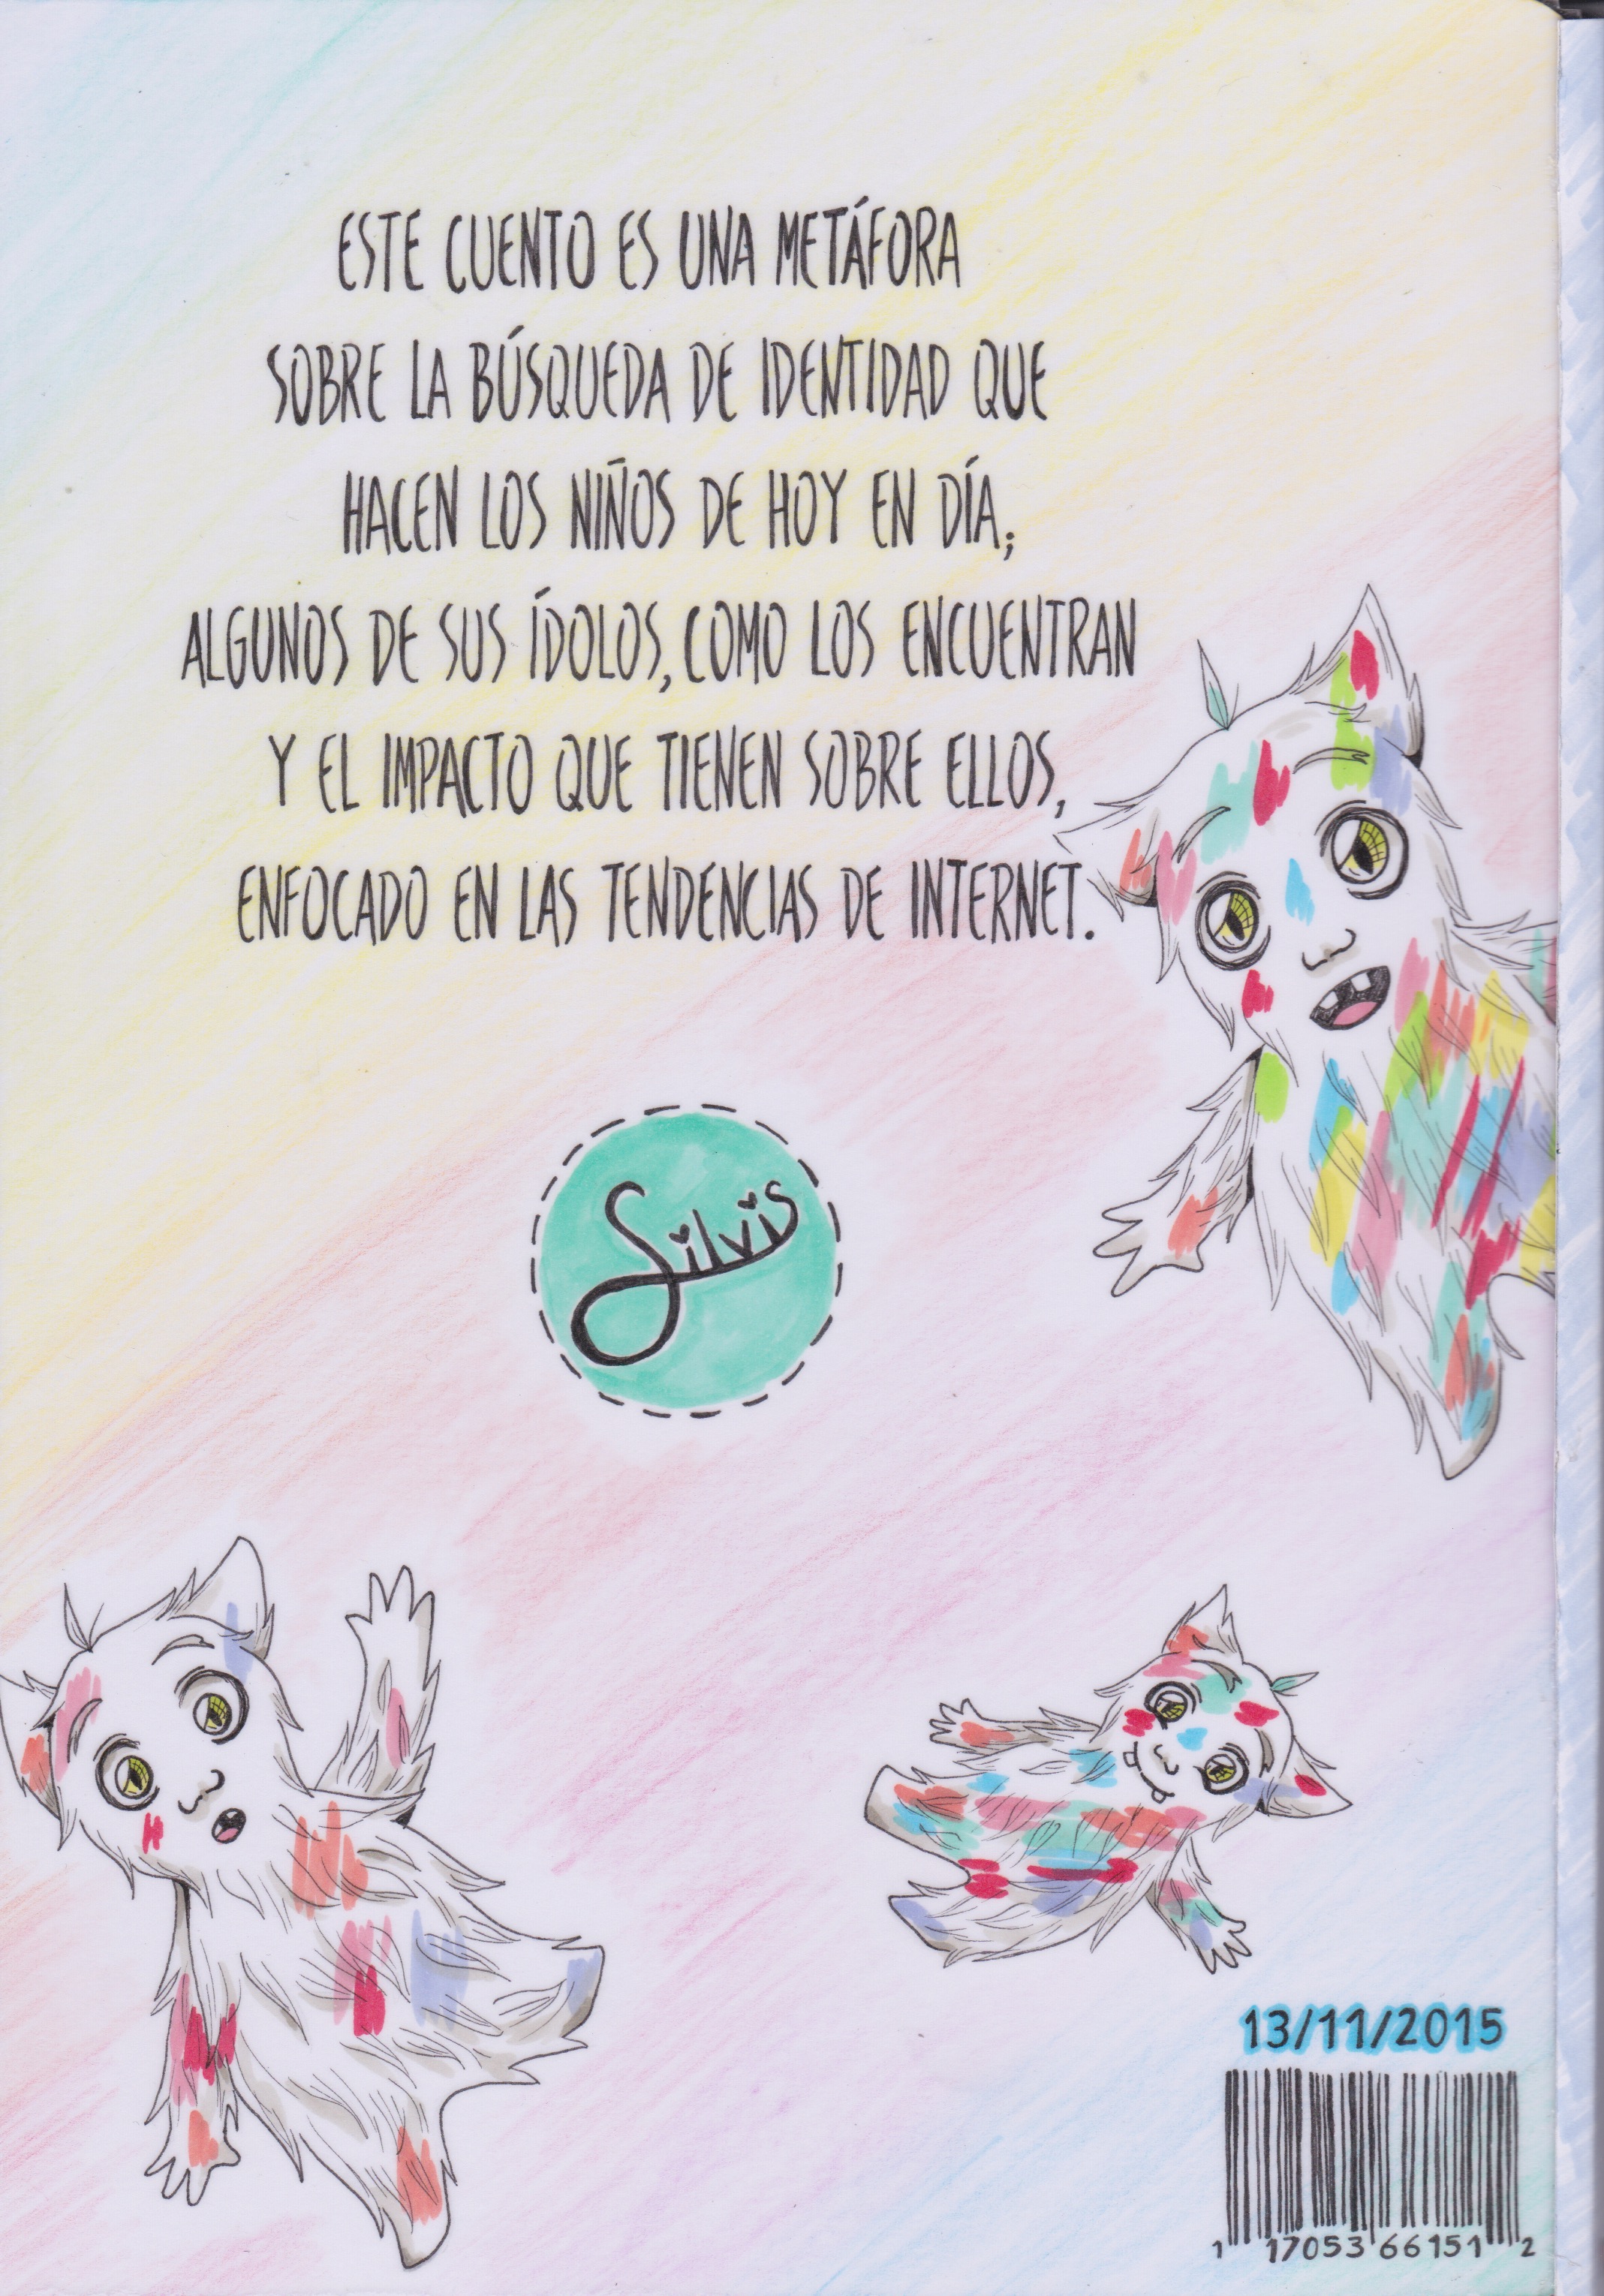 ESTE CUENTO ES UNA METÁFORA
SOBRE LA BÚSQUEDA DE IDENTIDAD QUE
HACEN LOS NIÑOS DE HOY EN DÍA;
ALGUNOS DE SUS ÍDOLOS, COMO LOS ENCUENTRAN
Y EL IMPACTO QUE TIENEN SOBRE ELLOS,
ENFOCADO EN LAS TENDENCIAS DE INTERNET.
Silvis
13/11/2015
1 17053 66151 2